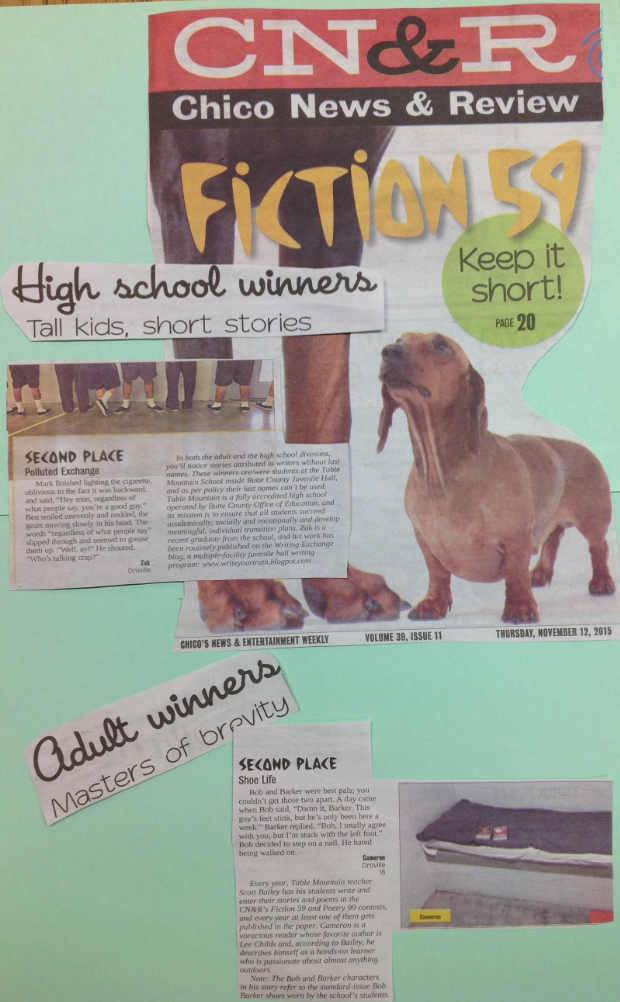 CN&R
Chico News & Review
FICTION 59
Keep it
short!
PAGE 20
High school winners
Tall kids, short stories
SECOND PLACE
Polluted Exchange
Mark finished lighting the cigarette,
oblivious to the fact it was backward,
and said, "Hey man, regardless of
what people say, you're a good guy."
Ben smiled unevenly and nodded, the
gears moving slowly in his head. The
words "regardless of what people say"
slipped through and seemed to grease
them up. "Well, ay!" He shouted.
"Who's talking crap?"
Zak
Oroville
In both the adult and the high school divisions,
you'll notice stories attributed to writers without last
names. These winners are/were students at the Table
Mountain School inside Butte County Juvenile Hall,
and as per policy their last names can't be used.
Table Mountain is a fully accredited high school
operated by Butte County Office of Education, and
its mission is to ensure that all students succeed
academically, socially and vocationally and develop
meaningful, individual transition plans. Zak is a
recent graduate from the school, and his work has
been routinely published on the Writing Exchange
blog, a multiple-facility juvenile hall writing
program: www.writeyourtruth.blogspot.com
CHICO'S NEWS & ENTERTAINMENT WEEKLY
VOLUME 39, ISSUE 11
THURSDAY, NOVEMBER 12, 2015
Adult winners
Masters of brevity
SECOND PLACE
Shoe Life
Bob and Barker were best pals; you
couldn't get those two apart. A day came
when Bob said, "Damn it, Barker. This
guy's feet stink, but he's only been here a
week." Barker replied, "Bob, I totally agree
with you, but I'm stuck with the left foot."
Bob decided to step on a nail. He hated
being walked on.
Cameron
Oroville
16
Every year, Table Mountain teacher
Scott Bailey has his students write and
enter their stories and poems in the
CN&R's Fiction 59 and Poetry 99 contests,
and every year at least one of them gets
published in the paper. Cameron is a
voracious reader whose favorite author is
Lee Childs and, according to Bailey, he
describes himself as a hands-on learner
who is passionate about almost anything
outdoors.
Note: The Bob and Barker characters
in his story refer to the standard-issue Bob
Barker shoes worn by the school's students.
Cameron